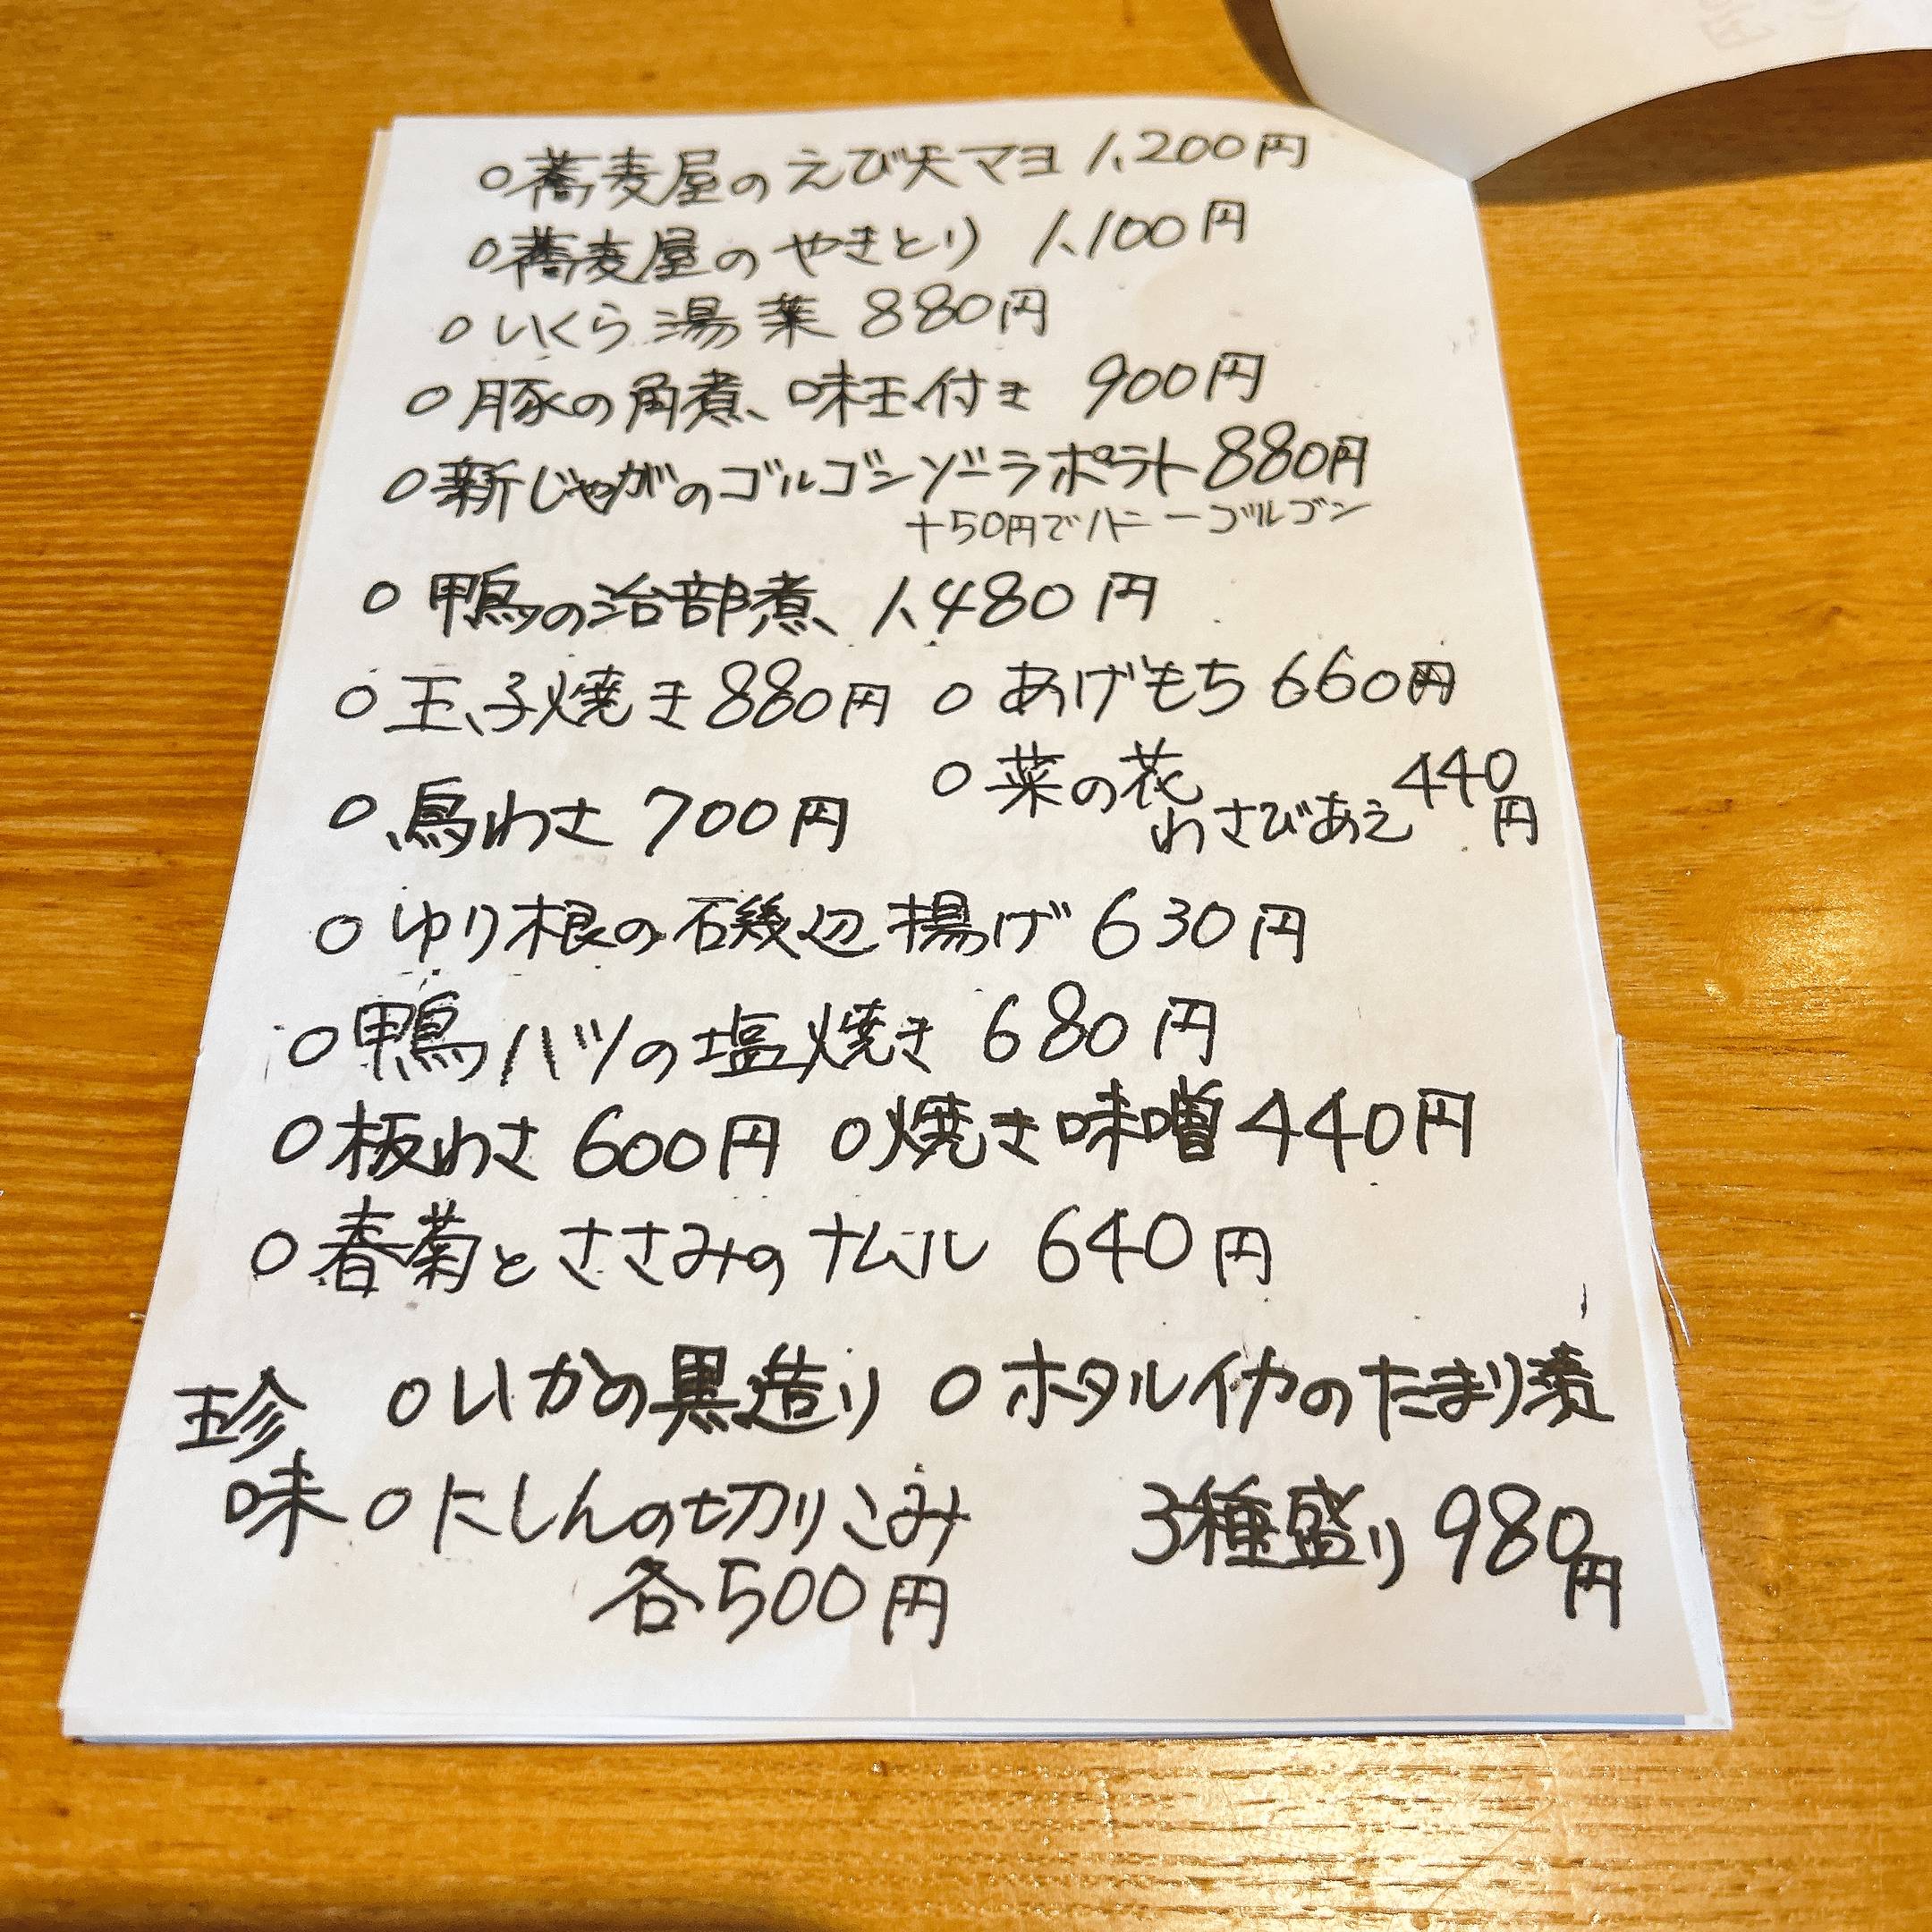 ○蕎麦屋のえび天マヨ 1,200円
○蕎麦屋のやきとり 1,100円
○いくら湯葉 880円
○豚の角煮、味玉付き 900円
○新じゃがのゴルゴンゾーラポテト 880円
+50円でハニーゴルゴン
○鴨の治部煮、1,480円
○玉子焼き880円 ○あげもち660円
○鳥わさ 700円 ○菜の花わさびあえ440円
○ゆり根の磯辺揚げ 630円
○鴨ハツの塩焼き 680円
○板わさ 600円 ○焼き味噌440円
○春菊とささみのナムル 640円
珍味 ○いかの黒造り ○ホタルイカのたまり漬
○にしんの切りこみ 3種盛り 980円
各500円